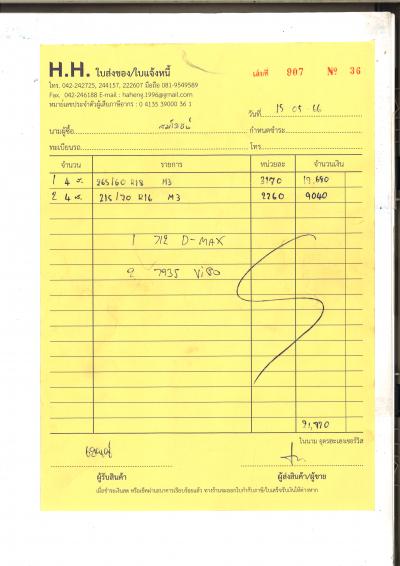 H.H. ใบส่งของ/ใบแจ้งหนี้
เล่มที่ 907 № 36
โทร. 042-242725, 244157, 222607 มือถือ 081-9549589
Fax. 042-246188 E-mail : haheng.1996@gmail.com
หมายเลขประจำตัวผู้เสียภาษีอากร : 0 4135 39000 36 1
วันที่ 15 05 66
นามผู้ซื้อ กำหนดชำระ
ทะเบียนรถ โทร
จำนวน รายการ หน่วยละ จำนวนเงิน
1 4 ส. 265/60 R18 M3 3170 12,680
2 4 ส. 215/70 R16 M3 2260 9040
1 712 D-MAX
2 7935 Vigo
21,720
ในนาม อุดรฮะเฮงเซอร์วิส
ผู้รับสินค้า ผู้ส่งสินค้า/ผู้ขาย
เมื่อชำระเงินสด หรือเช็คผ่านธนาคารเรียบร้อยแล้ว ทางร้านจะออกใบกำกับภาษี/ใบเสร็จรับเงินให้ต่างหาก